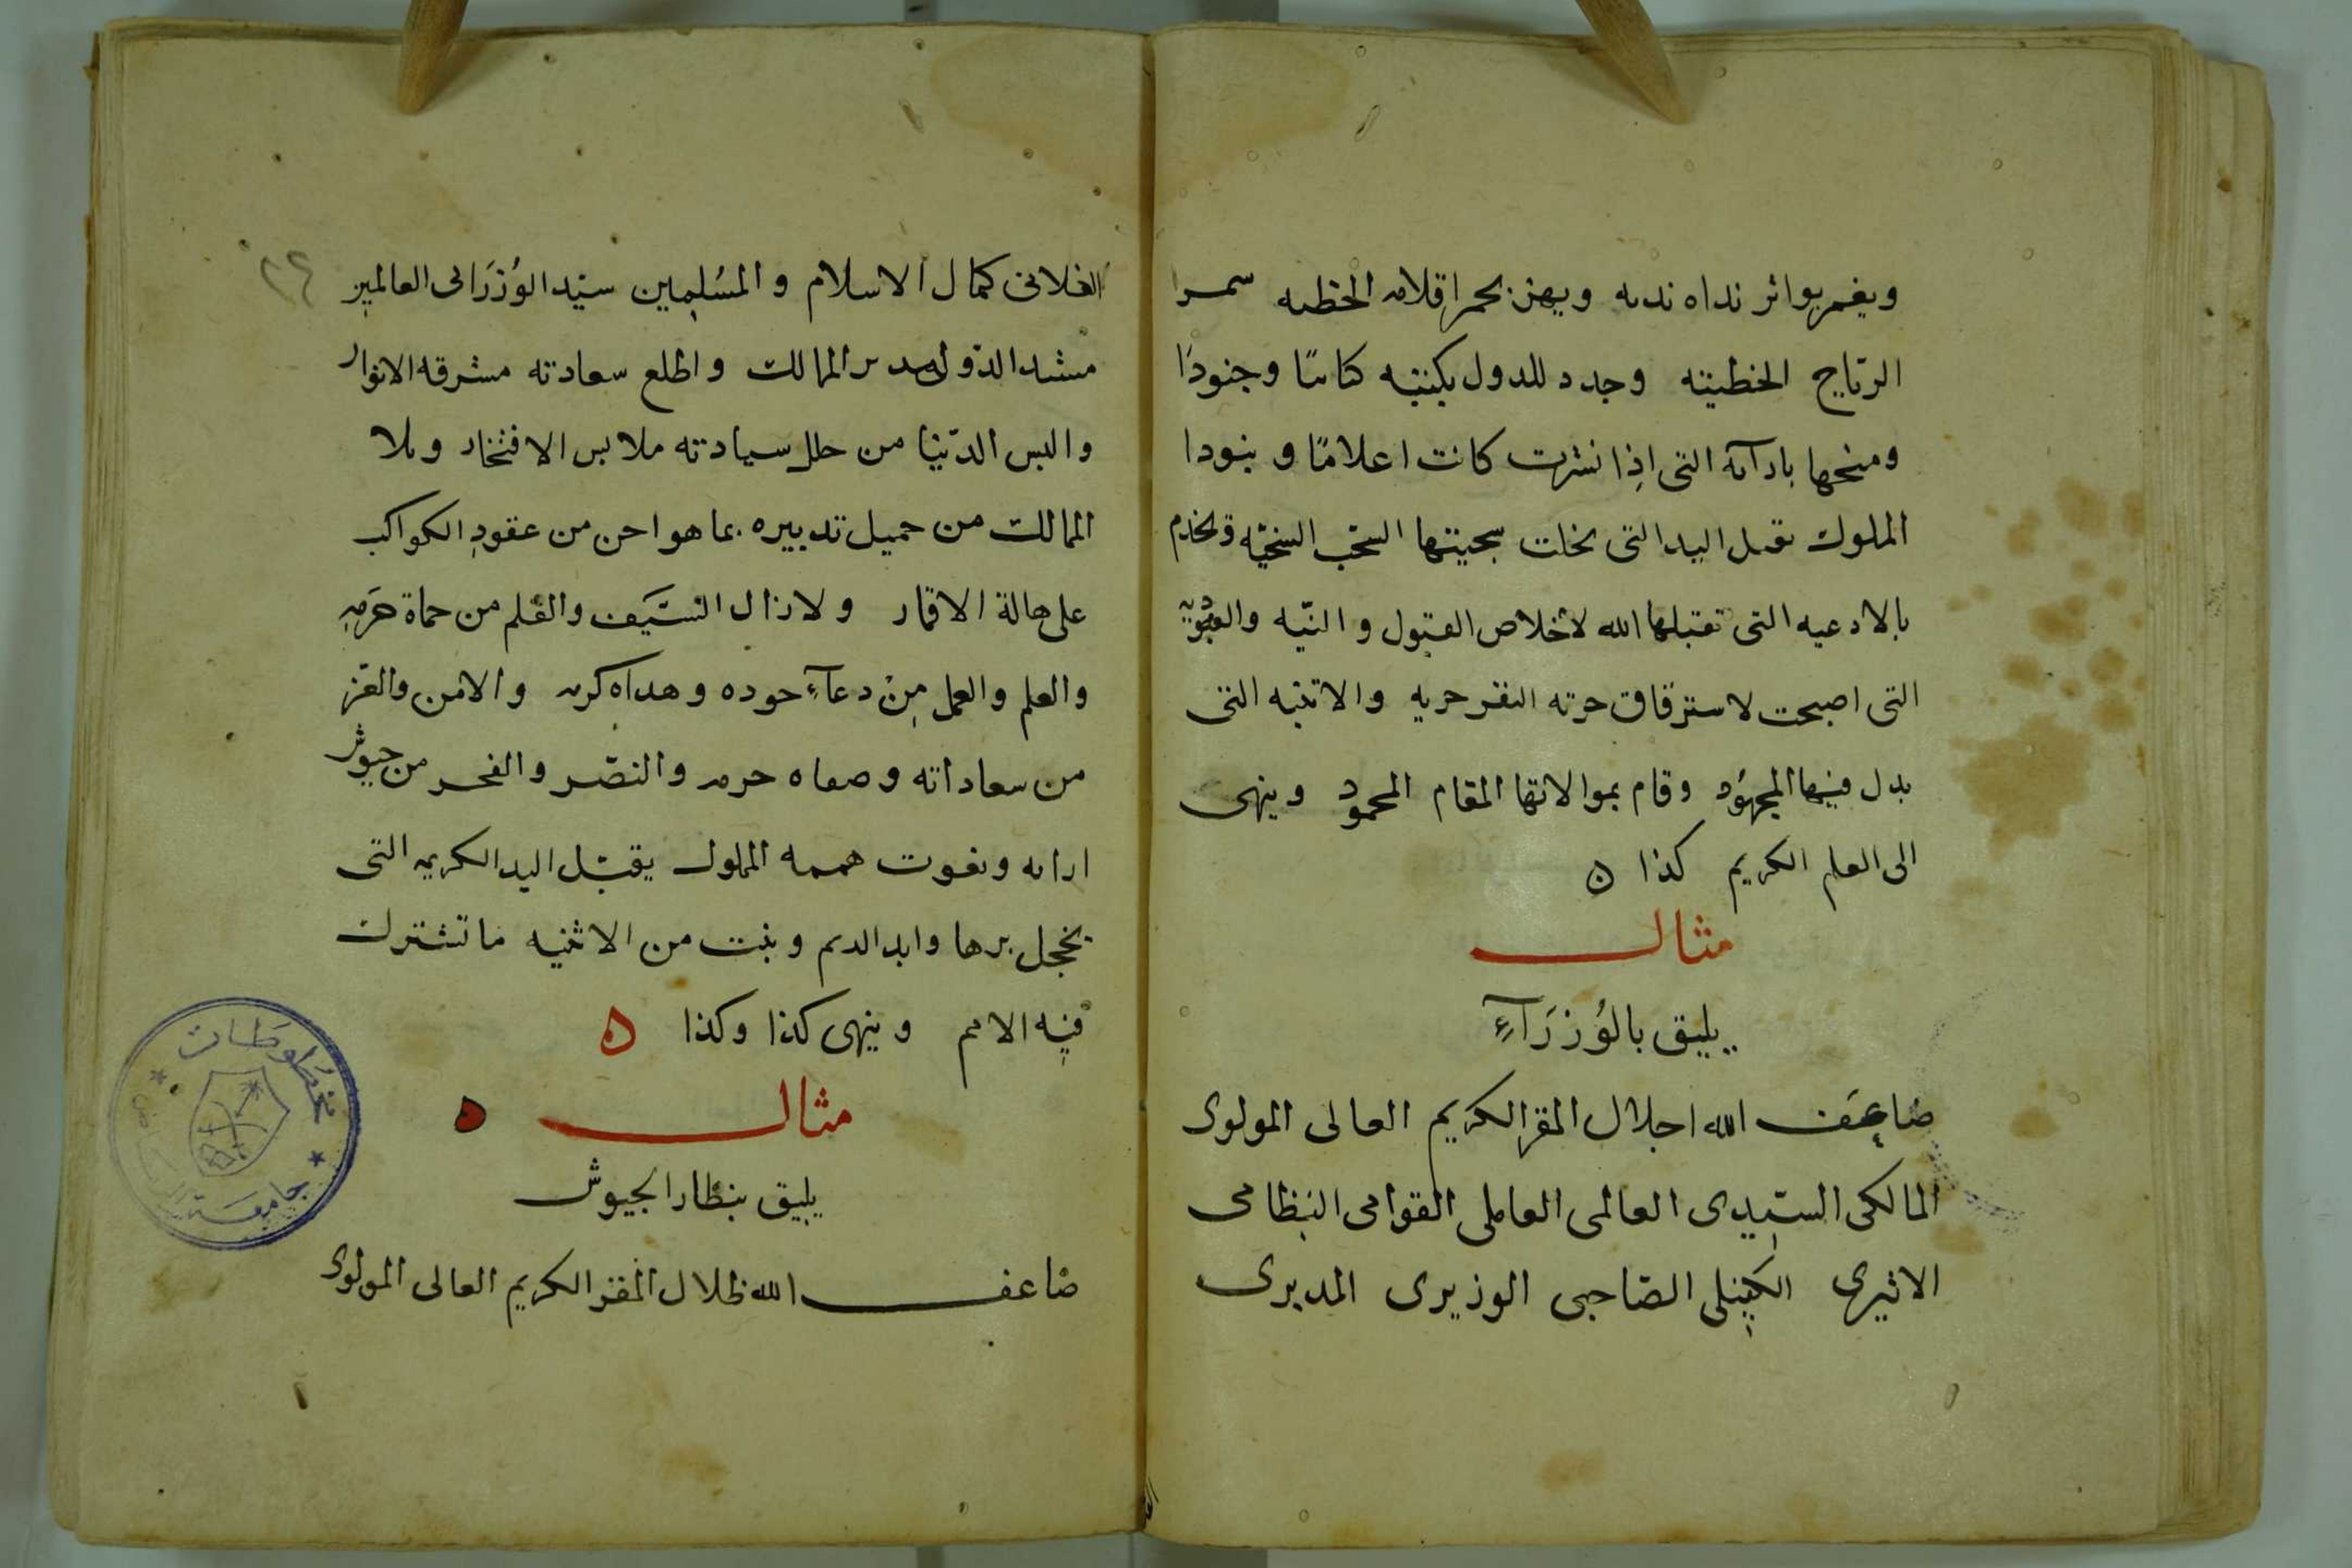 ويغمر بواتر نداه نديه ويهز بحمر اقلامه الخطيه سمرا
الرماح الخطيته وجدد للدول بكتبه كتائبا وجنودا
ومنحها بارآئه التى اذا نشرت كانت اعلامًا و بنودا
الملوك يقبل اليد التى بخلت سجيتها السحب السخيّه ويخدم
بالادعيه التى تقبلها الله لاخلاص القبول و النيّه والعبوديه
التى اصبحت لاسترقاق حرته النفر حريه والاثنيه التى
بدل فيها المجهُود وقام بموالاتها المقام المحمود وينهى
الى العلم الكريم كذا ه
مثال
يليق بالوُزرَآءِ
ضاعَف الله اجلال المقر الكريم العالى المولوى
المالكى السّيدى العالمى العاملى القوامى النظامى
الاثيرى الكفيلى الصّاحبى الوزيرى المدبرى
الفلانى كمال الاسلام و المسُلمين سيّد الوُزرَا فى العالمين
مشيد الدّول مدبر الممالك واطلع سعادته مشرقه الانوار
والبس الدّنيا من حلل سيادته ملابس الافتخار وملا
الممالك من جميل تدبيره بما هو احسن من عقودِ الكواكب
على هالة الاقمار ولا زال السَّيف والقلم من حماة حَرَمهِ
والعلم والعمل مِنْ دعآءِ جوده وهداه كرمه والامن والعز
من سعاداته وصفاه حرمه والنصّر والفخر من جيوش
ارائه ونعوت هممه المملوك يقبّل اليد الكريمه التى
يخجل برها وابد الديم وبثت من الاثنيه ما تشترك
فيه الامم وينهى كذا وكذا ه
مثال ه
يليق بنظار الجيوش
ضاعف الله ظلال المقر الكريم العالى المولوى
مخطوطات
جامعة